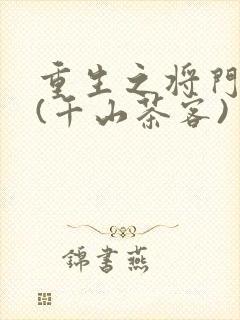 重生之将門
(千山茶客)
錦書燕